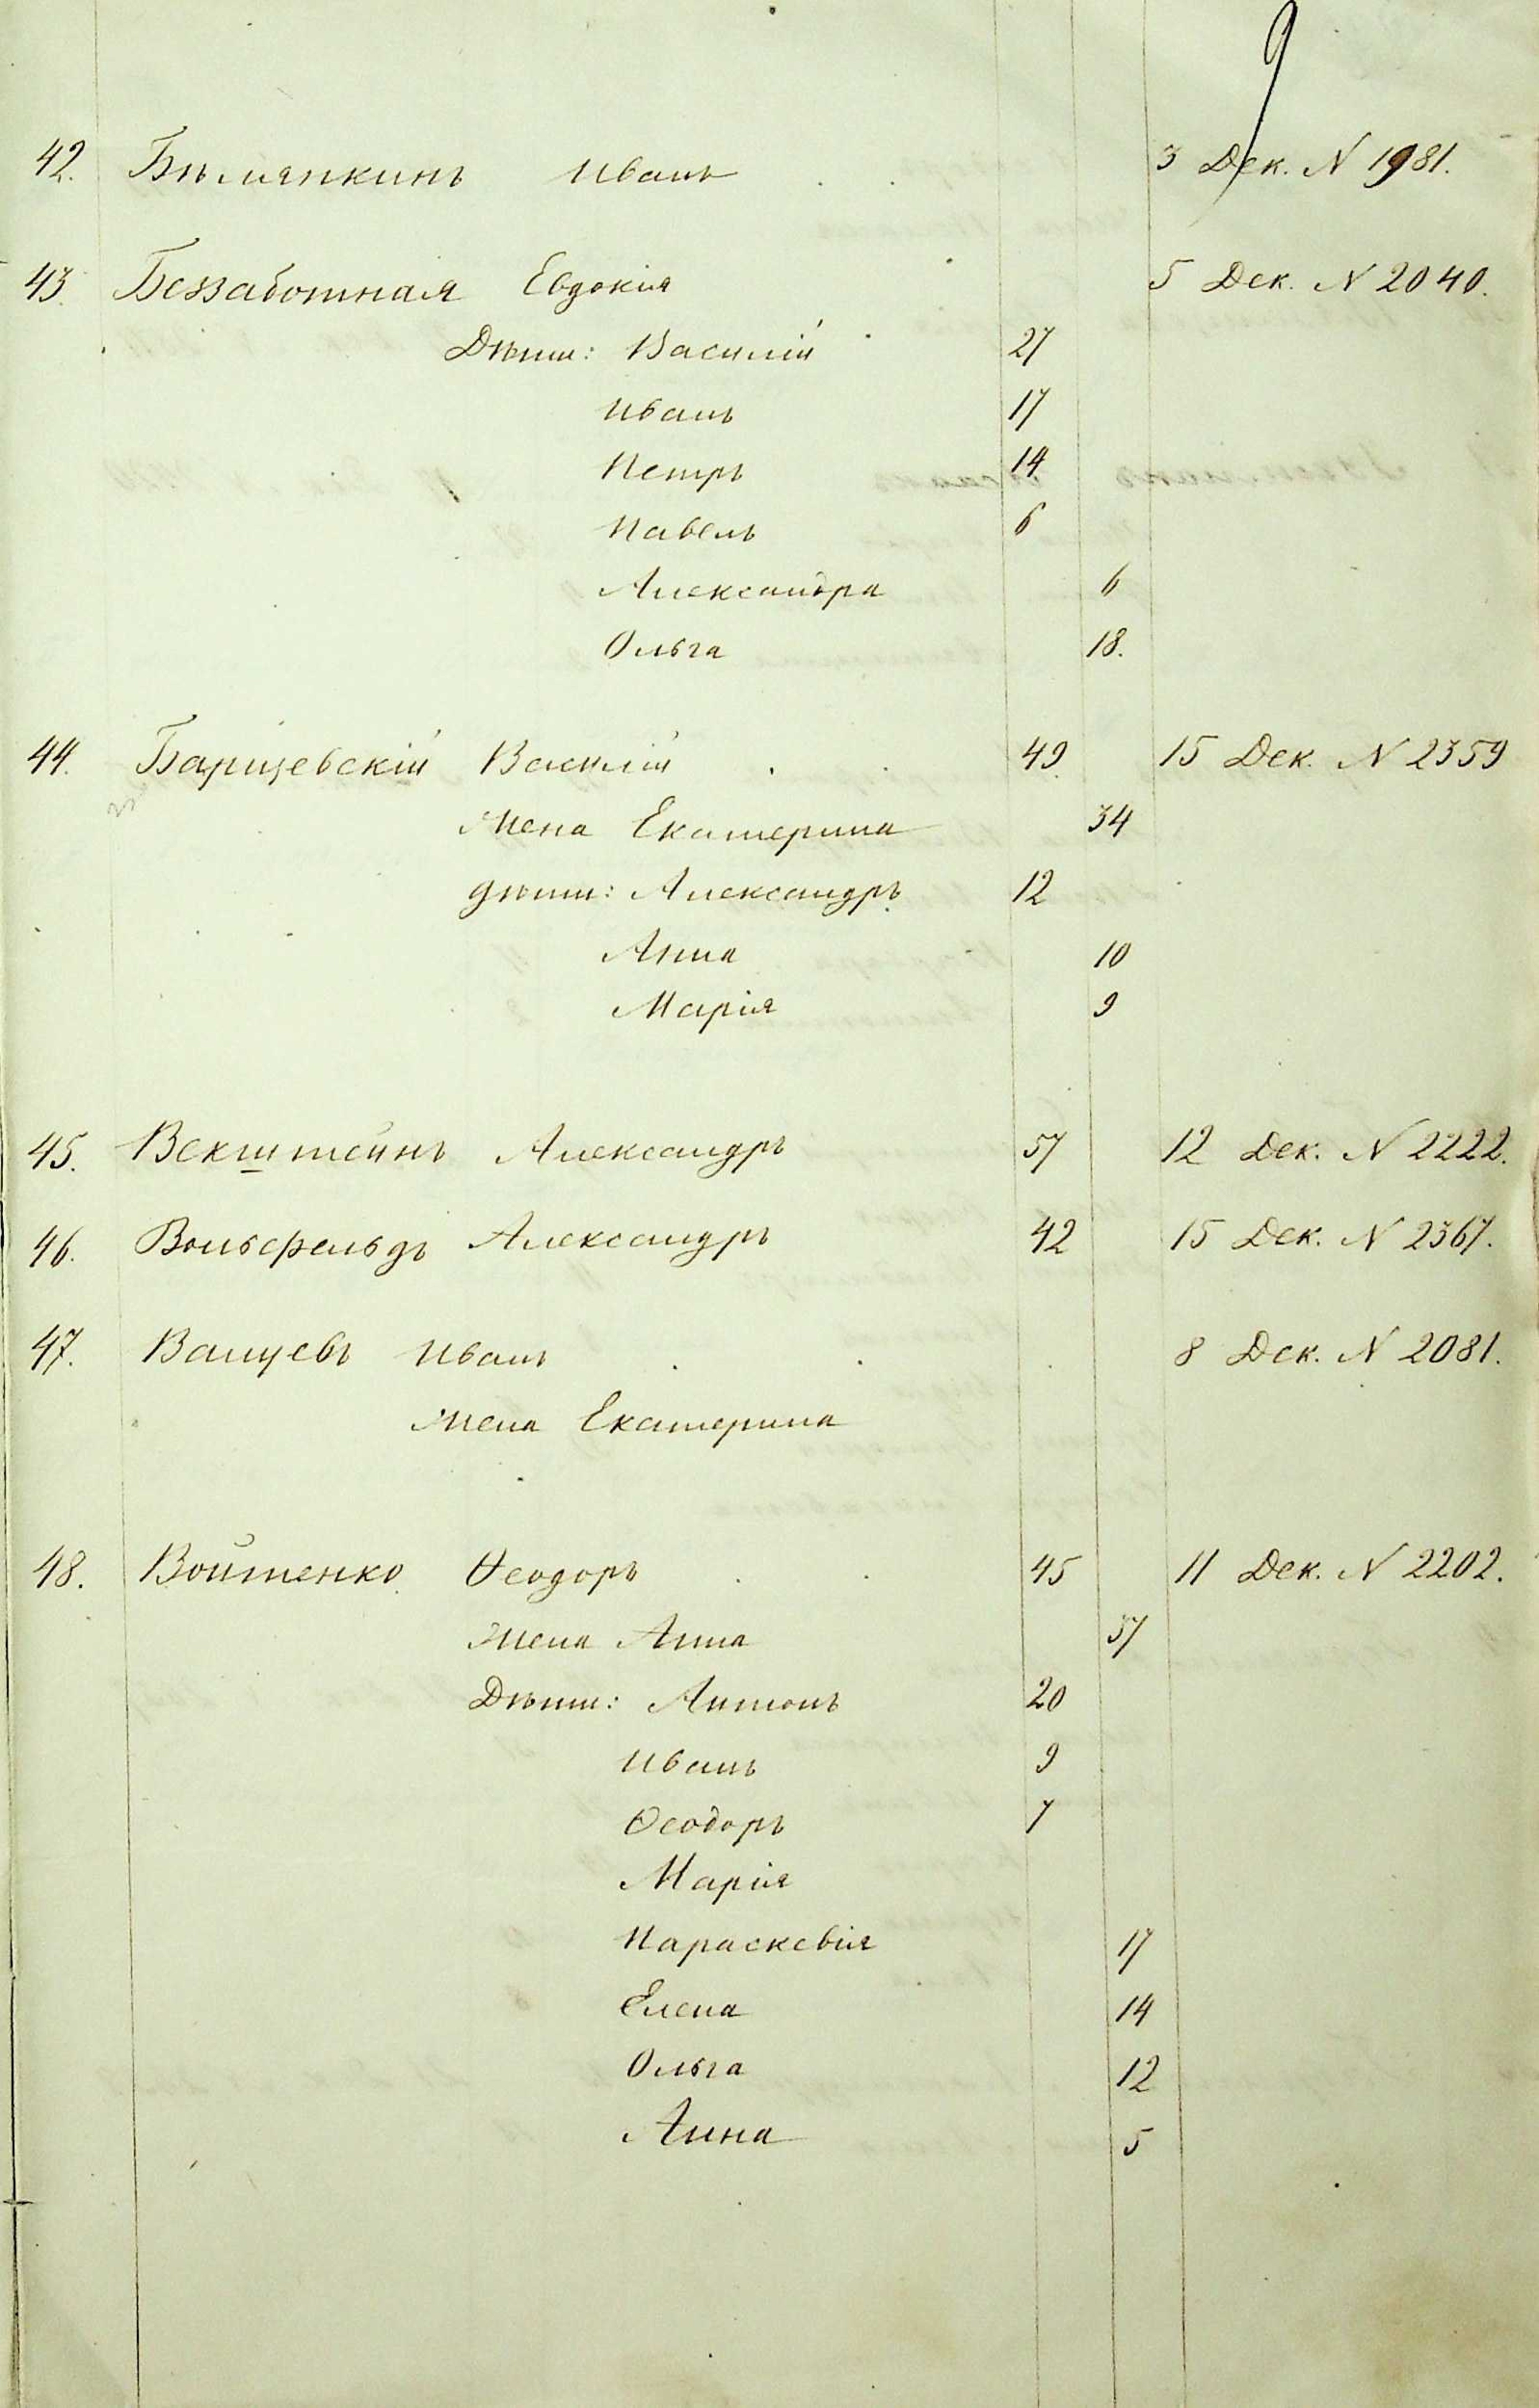 9
42. Бѣляпкинъ Иванъ 3 Дек. N 1981.
43. Беззаботная Евдокія 5 Дек. N 2040.
Дѣти: Василій 27
Иванъ 17
Петръ 14
Павелъ 6
Александра 6
Ольга 18.
44. Барщевскій Василій 49 15 Дек. N 2359
Жена Екатерина 34
дѣти: Александръ 12
Анна 10
Марія 9
45. Векштейнъ Александръ 57 12 Дек. N 2222.
46. Вольфельдъ Александръ 42 15 Дек. N 2367.
47. Ванцевъ Иванъ 8 Дек. N 2081.
Жена Екатерина
48. Войтенко Ѳеодоръ 45 11 Дек. N 2202.
Жена Анна 37
Дѣти: Антонъ 20
Иванъ 9
Ѳеодоръ 7
Марія
Параскевія 17
Елена 14
Ольга 12
Анна 5